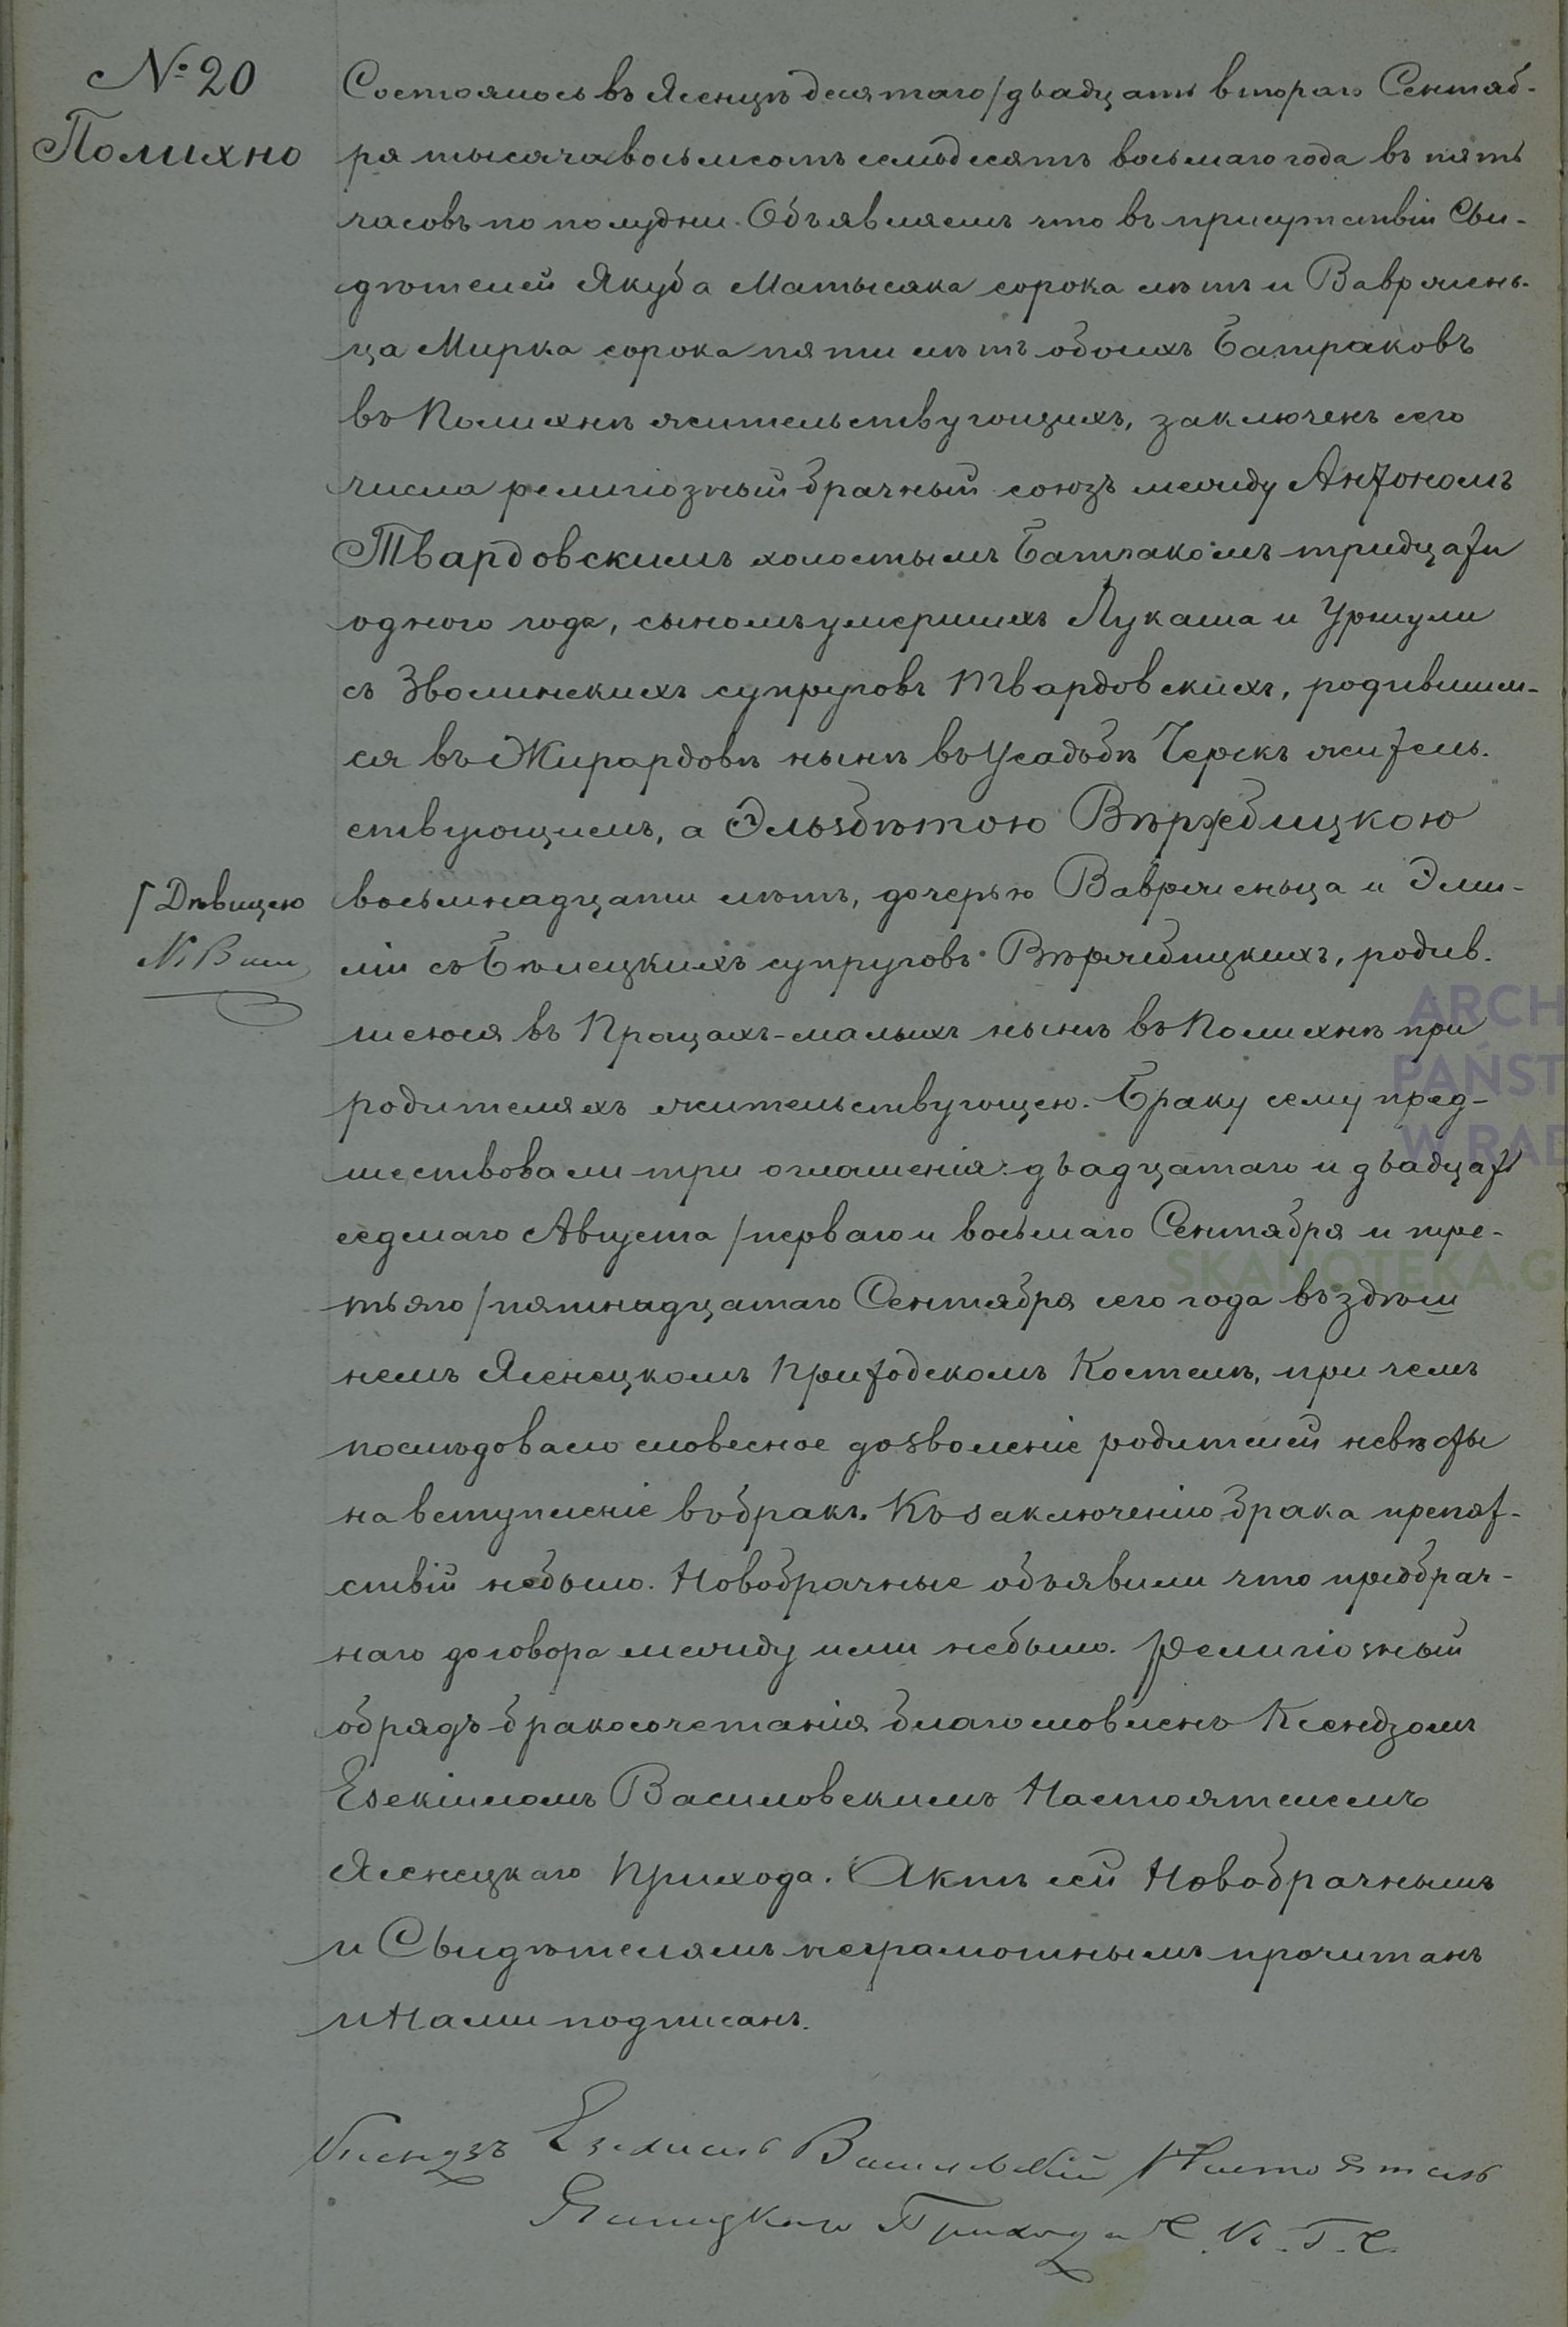 № 20
Полихно
Состоялось въ Ясенцѣ десятаго/двадцать втораго Сентяб-
ря тысяча восьмсотъ семьдесятъ восьмаго года въ пять
часовъ по полудни. Объявляемъ что въ присутствіи Сви-
дѣтелей Якуба Матысяка сорока лѣтъ и Вавржень-
ца Мирка сорока пяти лѣтъ обоихъ Батраковъ
въ Полихнѣ жительствующихъ, заключенъ сего
числа религіозный брачный союзъ между Антономъ
Твардовскимъ холостымъ Батракомъ тридцати
одного года, сыномъ умершихъ Лукаша и Уршули
съ Зволинскихъ супруговъ Твардовскихъ, родившим-
ся въ Жирардовѣ нынѣ въ Усадьбѣ Черскъ житель-
ствующимъ, а Эльзбѣтою Вѣржблицкою
⌈ Дѣвицею
восьмнадцати лѣтъ, дочерью Вавърженьца и Эми-
ліи съ Бѣлецкихъ супруговъ Вѣржблицкихъ, родив-
шеюся въ Процахъ-малыхъ нынѣ въ Полихнѣ при
родителяхъ жительствующею. Браку сему пред-
шествовали три оглашенія: двадцатаго и двадцать
седмаго Августа /перваго и восьмаго Сентября и тре-
тьяго/пятнадцатаго Сентября сего года въ здѣш
немъ Ясенецкомъ Приходскомъ Костелѣ, при чемъ
послѣдовало словесное дозволеніе родителей невѣсты
на вступленіе въ бракъ. Къ заключенію брака препят-
ствій небыло. Новобрачные объявили что предбрач-
наго договора между ими небыло. Религіозный
обрядъ бракосочетанія благословленъ Ксендзомъ
Езекіиломъ Василовскимъ Настоятелемъ
Ясенецкаго Прихода. Актъ сей Новобрачнымъ
и Свидѣтелямъ неграмотнымъ прочитанъ
и Нами подписанъ.
Ксендзъ Езекіиль Василовскій Настоятель
Ясенецкаго Прихода С. К. Г. С.
ARCH
PAŃST
W RAD
SKANOTEKA.G